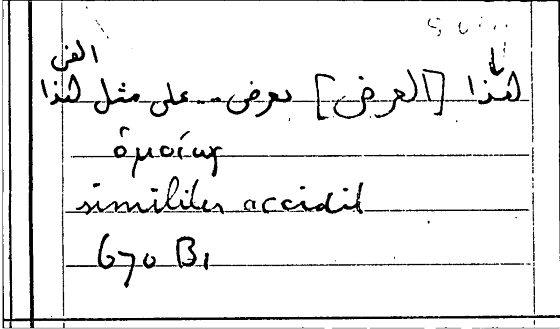 الفن
لهذا [العرض] يعرض .. على مثل لهذا
ὁμοίως
similiter accidit
670 B1